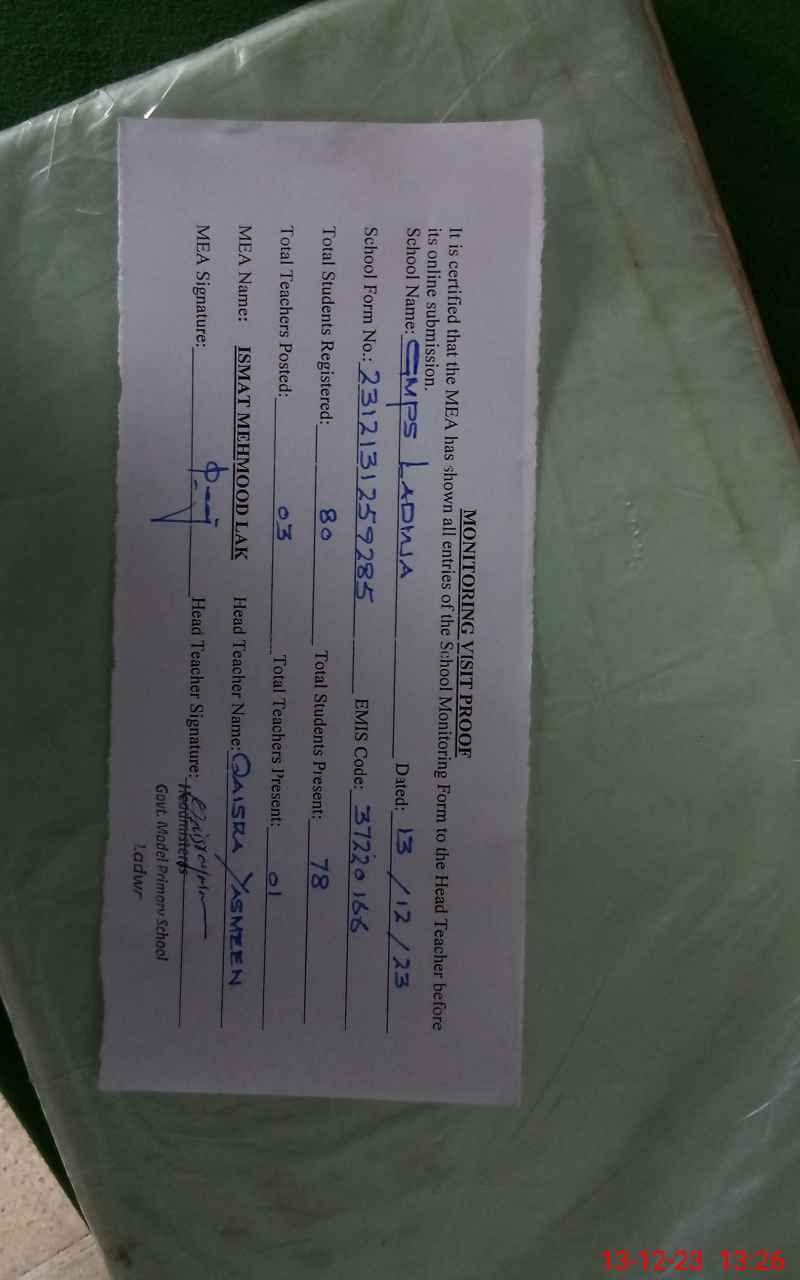 MONITORING VISIT PROOF
It is certified that the MEA has shown all entries of the School Monitoring Form to the Head Teacher before
its online submission.
School Name: GMPS LADWA Dated: 13/12/23
School Form No.: 2312131259285 EMIS Code: 37220166
Total Students Registered: 80 Total Students Present: 78
Total Teachers Posted: 03 Total Teachers Present: 01
MEA Name: ISMAT MEHMOOD LAK Head Teacher Name: QAISRA YASMEEN
MEA Signature: Head Teacher Signature:
Headmistress
Govt. Model Primary School
13-12-23 13:26